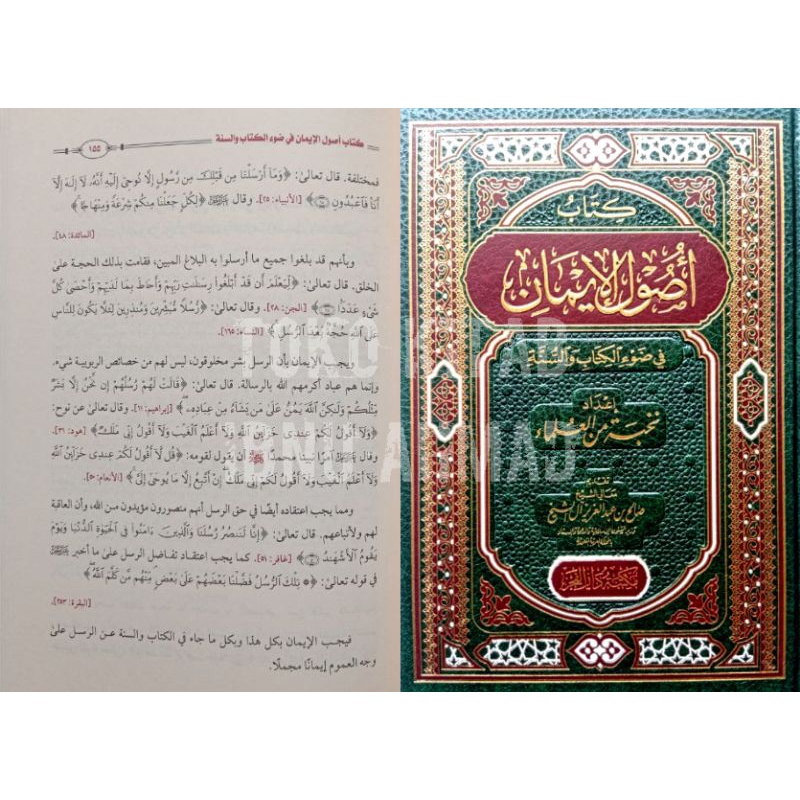 كتاب أصول الإيمان في ضوء الكتاب والسنة
١٥٥
فمختلفة. قال تعالىٰ: ﴿وَمَا أَرْسَلْنَا مِن قَبْلِكَ مِن رَّسُولٍ إِلَّا نُوحِي إِلَيْهِ أَنَّهُ لَا إِلَهَ إِلَّا
أَنَا فَاعْبُدُونِ ۝﴾ [الأنبياء: ٢٥]. وقال ﷻ: ﴿لِكُلٍّ جَعَلْنَا مِنكُمْ شِرْعَةً وَمِنْهَاجًا﴾
[المائدة: ٤٨].
وبأنهم قد بلغوا جميع ما أرسلوا به البلاغ المبين، فقامت بذلك الحجة علىٰ
الخلق. قال تعالىٰ: ﴿لِيَعْلَمَ أَن قَدْ أَبْلَغُوا رِسَالَاتِ رَبِّهِمْ وَأَحَاطَ بِمَا لَدَيْهِمْ وَأَحْصَى كُلَّ
شَيْءٍ عَدَدًا﴾ [الجن: ٢٨]. وقال تعالىٰ: ﴿رُسُلًا مُّبَشِّرِينَ وَمُنذِرِينَ لِئَلَّا يَكُونَ لِلنَّاسِ
عَلَى اللَّهِ حُجَّةٌ بَعْدَ الرُّسُلِ﴾ [النساء: ١٦٥].
ويجب الإيمان بأن الرسل بشر مخلوقون، ليس لهم من خصائص الربوبية شيء.
وإنما هم عباد أكرمهم الله بالرسالة. قال تعالىٰ: ﴿قَالَتْ لَهُمْ رُسُلُهُمْ إِن نَّحْنُ إِلَّا بَشَرٌ
مِّثْلُكُمْ وَلَكِنَّ اللَّهَ يَمُنُّ عَلَى مَن يَشَاءُ مِنْ عِبَادِهِ﴾ [إبراهيم: ١١]. وقال تعالىٰ عن نوح:
﴿وَلَا أَقُولُ لَكُمْ عِندِي خَزَائِنُ اللَّهِ وَلَا أَعْلَمُ الْغَيْبَ وَلَا أَقُولُ إِنِّي مَلَكٌ﴾ [هود: ٣١].
وقال ﷻ آمرًا نبينا محمدًا ﷺ أن يقول لقومه: ﴿قُل لَّا أَقُولُ لَكُمْ عِندِي خَزَائِنُ اللَّهِ
وَلَا أَعْلَمُ الْغَيْبَ وَلَا أَقُولُ لَكُمْ إِنِّي مَلَكٌ إِنْ أَتَّبِعُ إِلَّا مَا يُوحَى إِلَيَّ﴾ [الأنعام: ٥٠].
ومما يجب اعتقاده أيضًا في حق الرسل أنهم منصورون مؤيدون من الله، وأن العاقبة
لهم ولأتباعهم. قال تعالىٰ: ﴿إِنَّا لَنَنصُرُ رُسُلَنَا وَالَّذِينَ آمَنُوا فِي الْحَيَاةِ الدُّنْيَا وَيَوْمَ
يَقُومُ الْأَشْهَادُ ۝﴾ [غافر: ٥١]. كما يجب اعتقاد تفاضل الرسل علىٰ ما أخبر ﷻ
في قوله تعالىٰ: ﴿۞ تِلْكَ الرُّسُلُ فَضَّلْنَا بَعْضَهُمْ عَلَى بَعْضٍ مِّنْهُم مَّن كَلَّمَ اللَّهُ﴾
[البقرة: ٢٥٣].
فيجب الإيمان بكل هذا وبكل ما جاء في الكتاب والسنة عن الرسل علىٰ
وجه العموم إيمانًا مجملًا.
كتاب
أصول الإيمان
في ضوء الكتاب والسنة
إعداد
نخبة من العلماء
تقديم
معالي الشيخ
صالح بن عبد العزيز آل الشيخ
TOKO KITAB
IBNU AHMAD